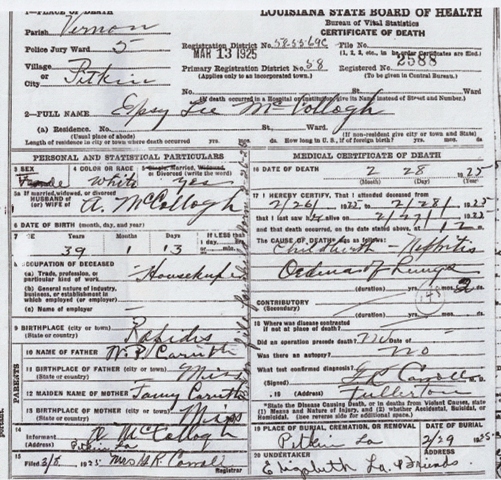 1—PLACE OF DEATH
LOUISIANA STATE BOARD OF HEALTH
Bureau of Vital Statistics
CERTIFICATE OF DEATH
Parish Vernon
Police Jury Ward 5
Registration District No. 58-5569C File No.
MAR 13 1925
(1, 2, 3, etc., in the order Certificates are filed.)
Village or City Pitkin
Primary Registration District No. 58 Registered No. 2588
(Applies only to an incorporated town.) (To be given in Central Bureau.)
No. St., Ward
(If death occurred in a Hospital or institution, give its Name instead of Street and Number.)
2—FULL NAME Epsy Lee McCollogh
(a) Residence. No. St., Ward.
(Usual place of abode) (If non-resident give city or town and State)
Length of residence in city or town where death occurred yrs. mos. How long in U. S., if of foreign birth? yrs. mos.
PERSONAL AND STATISTICAL PARTICULARS
3 SEX Female
4 COLOR OR RACE White
Single, Married, Widowed, or Divorced (write the word) yes
5a If married, widowed, or divorced
HUSBAND of (or) WIFE of A. McCollogh
6 DATE OF BIRTH (month, day, and year)
7 AGE 39 1 13 If LESS than 1 day
8 OCCUPATION OF DECEASED
(a) Trade, profession, or particular kind of work Housekeeper
(b) General nature of industry, business, or establishment in which employed (or employer)
(c) Name of employer
9 BIRTHPLACE (city or town) Rapides
(State or country)
PARENTS
10 NAME OF FATHER W. P. Caruth
11 BIRTHPLACE OF FATHER (city or town) Miss
(State or country)
12 MAIDEN NAME OF MOTHER Caruth
13 BIRTHPLACE OF MOTHER (city or town) Miss
(State or country)
14 Informant A. McCollogh
(Address) Pitkin La
15 Filed 3/8, 1925 Mrs
Registrar
MEDICAL CERTIFICATE OF DEATH
16 DATE OF DEATH 2 28 1925
(Month) (Day) (Year)
17 I HEREBY CERTIFY, That I attended deceased from
2/26/, 1925 to 2/28/, 1925
that I last saw alive on 2/27/, 192
and that death occurred, on the date stated above, at 12 m
The CAUSE OF DEATH was as follows:
Childbirth - Nephritis
Oedema of Lungs
(duration) yrs. mos. ds.
CONTRIBUTORY
(Secondary)
(duration) yrs. mos. ds.
143
18 Where was disease contracted
if not at place of death?
Did an operation precede death? No Date of
Was there an autopsy? no
What test confirmed diagnosis?
(Signed)
, 19 (Address) Fullerton
*State the Disease Causing Death, or in deaths from Violent Causes, state (1) Means and Nature of Injury, and (2) whether Accidental, Suicidal, or Homicidal. (see reverse side for additional space.)
19 PLACE OF BURIAL, CREMATION, OR REMOVAL
DATE OF BURIAL
Pitkin La 2/29 1925
20 UNDERTAKER
Elizabeth La. Friends